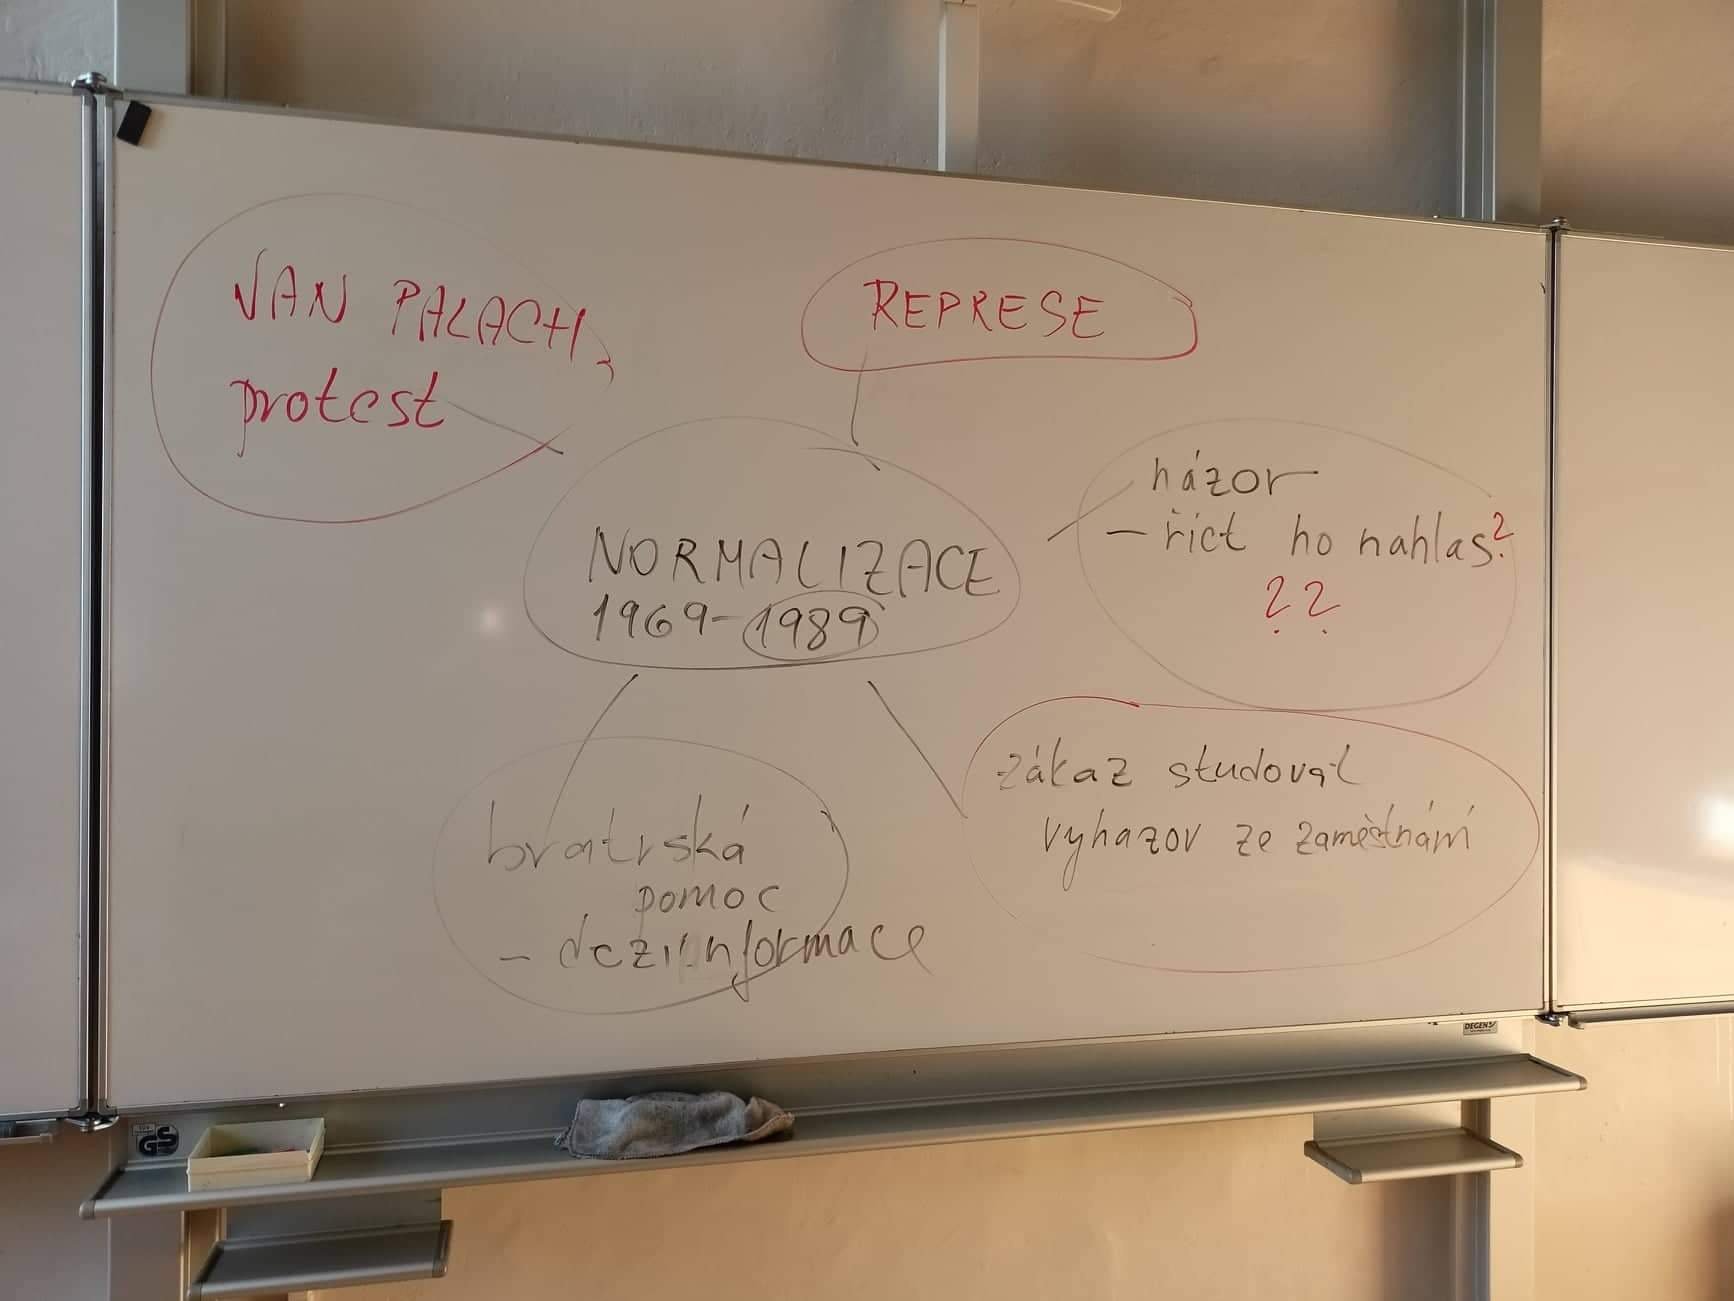 JAN PALACH,
protest
REPRESE
NORMALIZACE
1969-1989
názor
- říct ho nahlas?
? ?
bratrská
pomoc
- dezinformace
zákaz studovat
vyhazov ze zaměstnání
DEGEN
GS